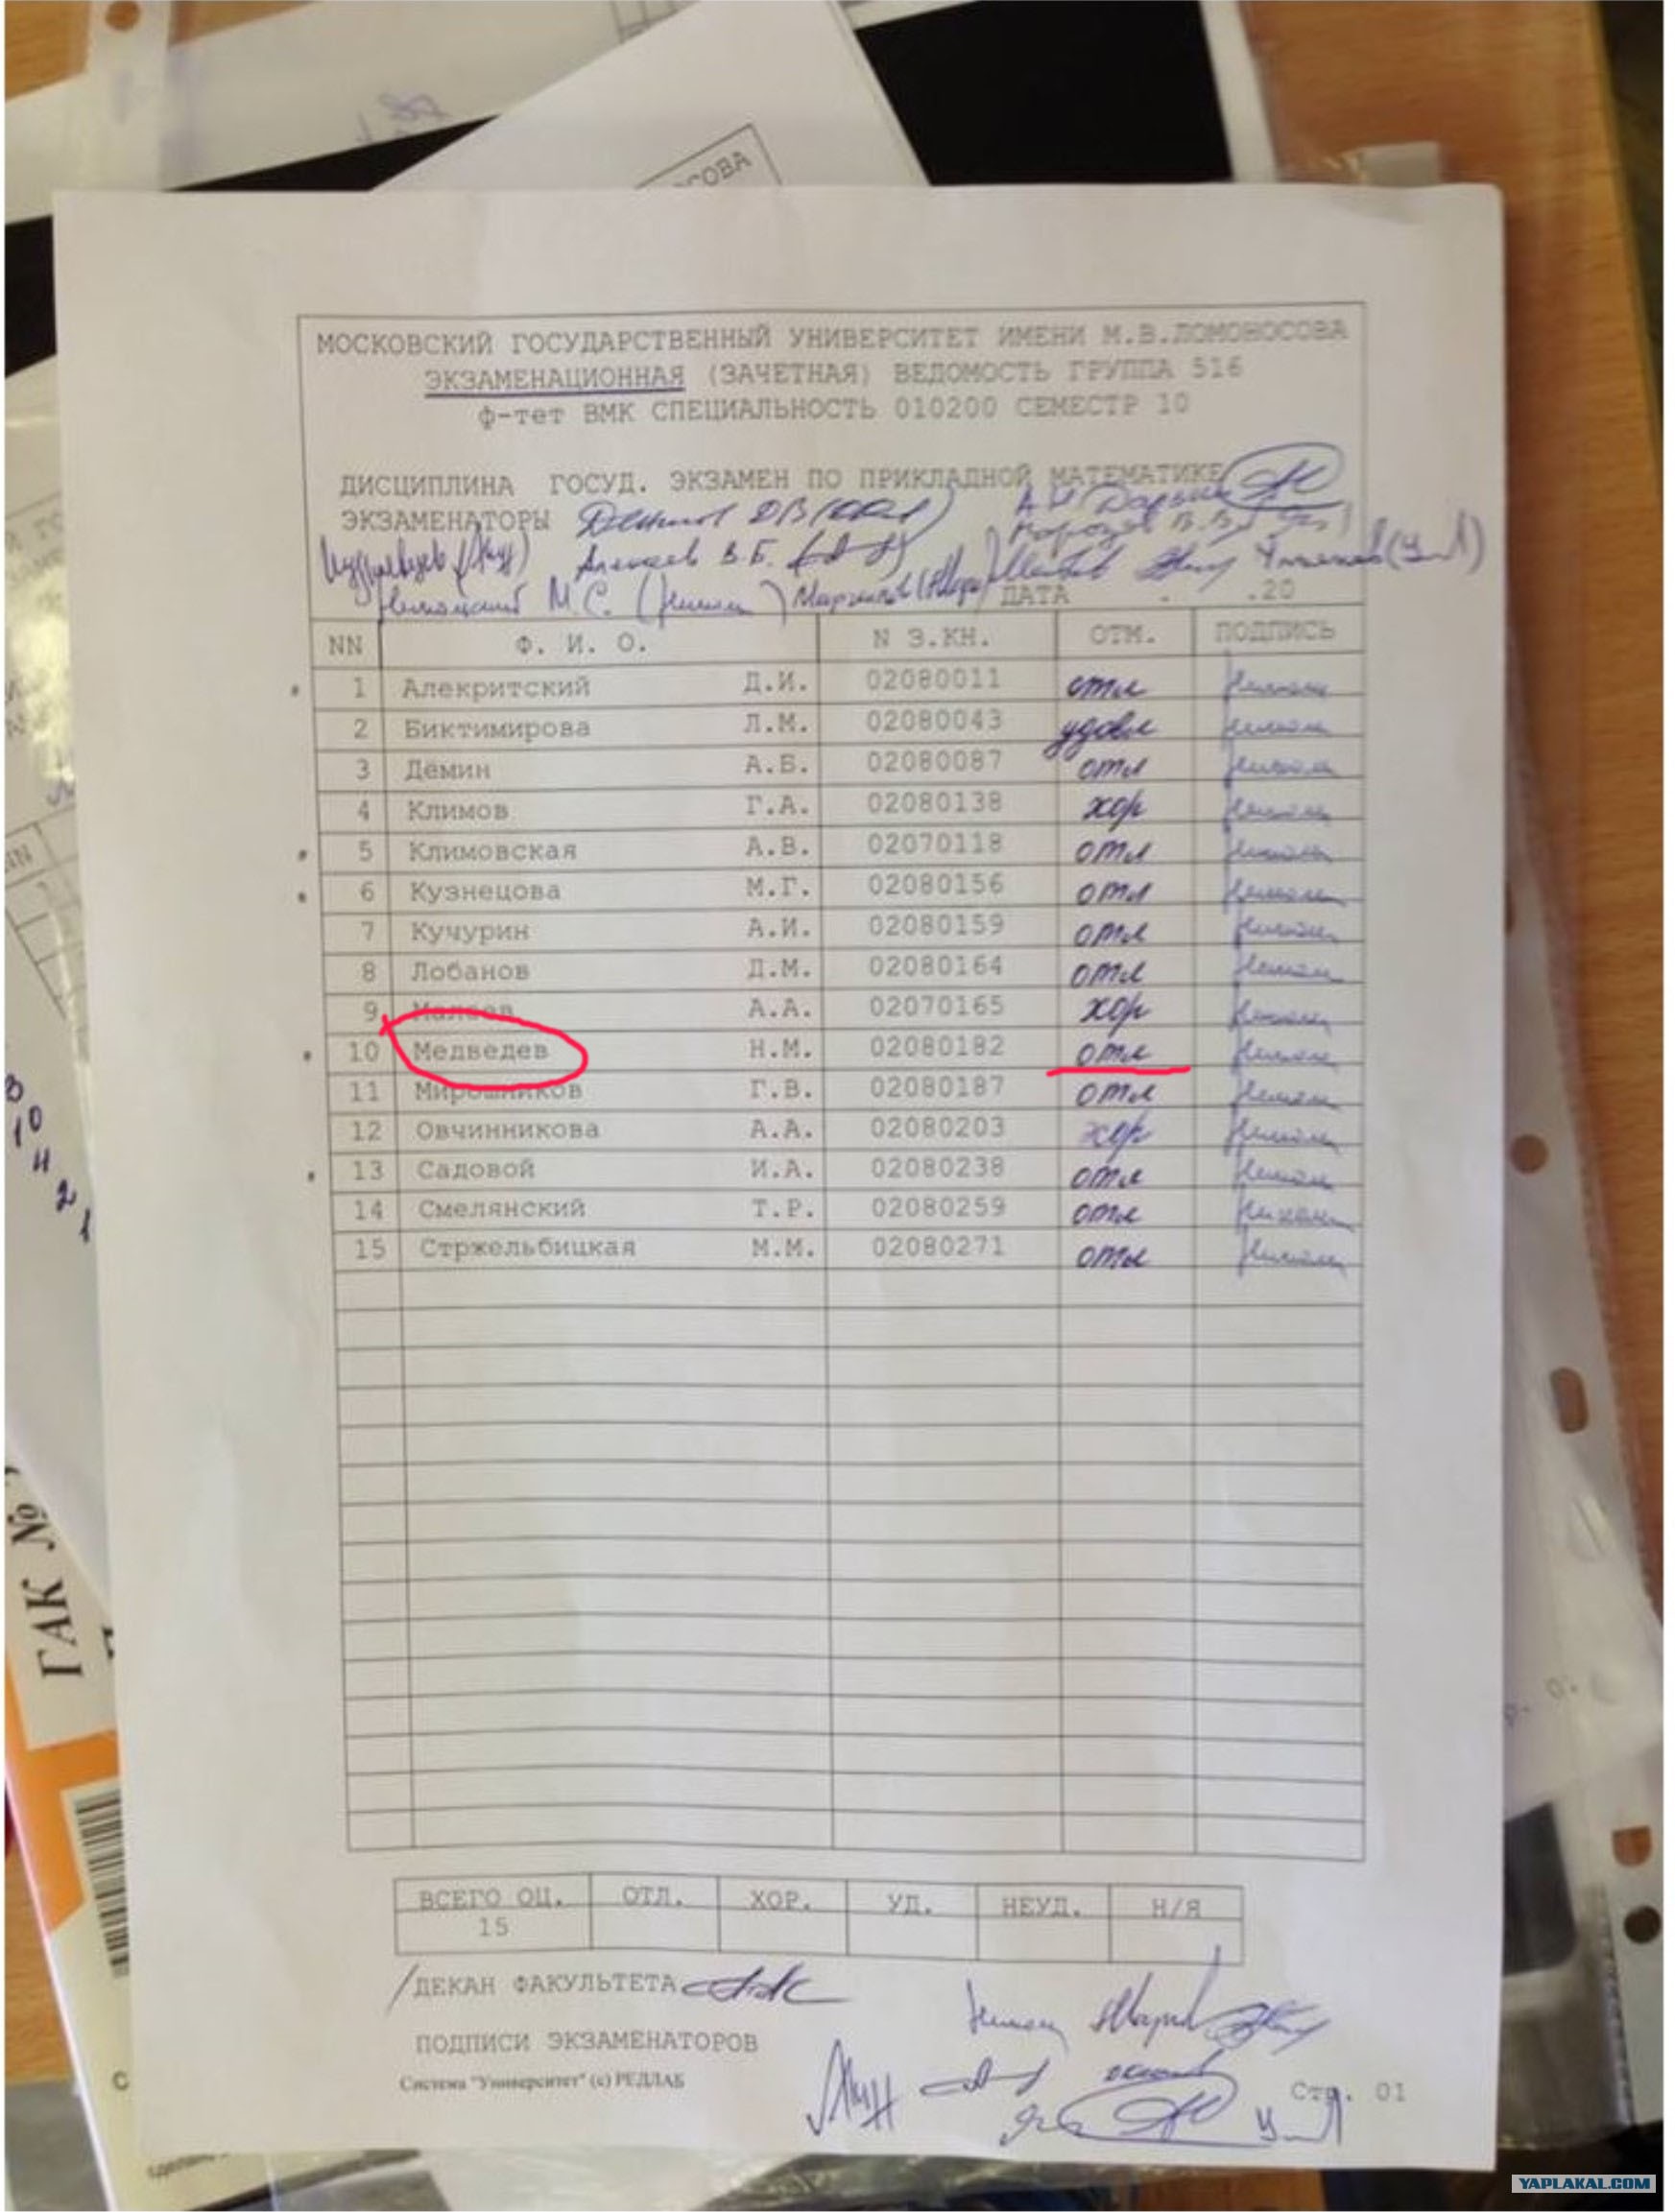 СОВА
МОСКОВСКИЙ ГОСУДАРСТВЕННЫЙ УНИВЕРСИТЕТ ИМЕНИ М.В.ЛОМОНОСОВА
ЭКЗАМЕНАЦИОННАЯ (ЗАЧЕТНАЯ) ВЕДОМОСТЬ ГРУППА 516
ф-тет ВМК СПЕЦИАЛЬНОСТЬ 010200 СЕМЕСТР 10
ДИСЦИПЛИНА ГОСУД. ЭКЗАМЕН ПО ПРИКЛАДНОЙ МАТЕМАТИКЕ
ЭКЗАМЕНАТОРЫ
Алексеев В.Б.
М.С. ДАТА . .20
NN Ф. И. О. N З.КН. ОТМ. ПОДПИСЬ
1 Алекритский Д.И. 02080011 отл
2 Биктимирова Л.М. 02080043 удовл
3 Демин А.Б. 02080087 отл
4 Климов Г.А. 02080138 хор
5 Климовская А.В. 02070118 отл
6 Кузнецова М.Г. 02080156 отл
7 Кучурин А.И. 02080159 отл
8 Лобанов Д.М. 02080164 отл
9 А.А. 02070165 хор
10 Медведев Н.М. 02080182 отл
11 Мирошников Г.В. 02080187 отл
12 Овчинникова А.А. 02080203 хор
13 Садовой И.А. 02080238 отл
14 Смелянский Т.Р. 02080259 отл
15 Стржельбицкая М.М. 02080271 отл
ВСЕГО ОЦ. ОТЛ. ХОР. УД. НЕУД. Н/Я
15
ДЕКАН ФАКУЛЬТЕТА
ПОДПИСИ ЭКЗАМЕНАТОРОВ
Система "Университет" (c) РЕДЛАБ
Стр. 01
ГАК №
YAPLAKAL.COM